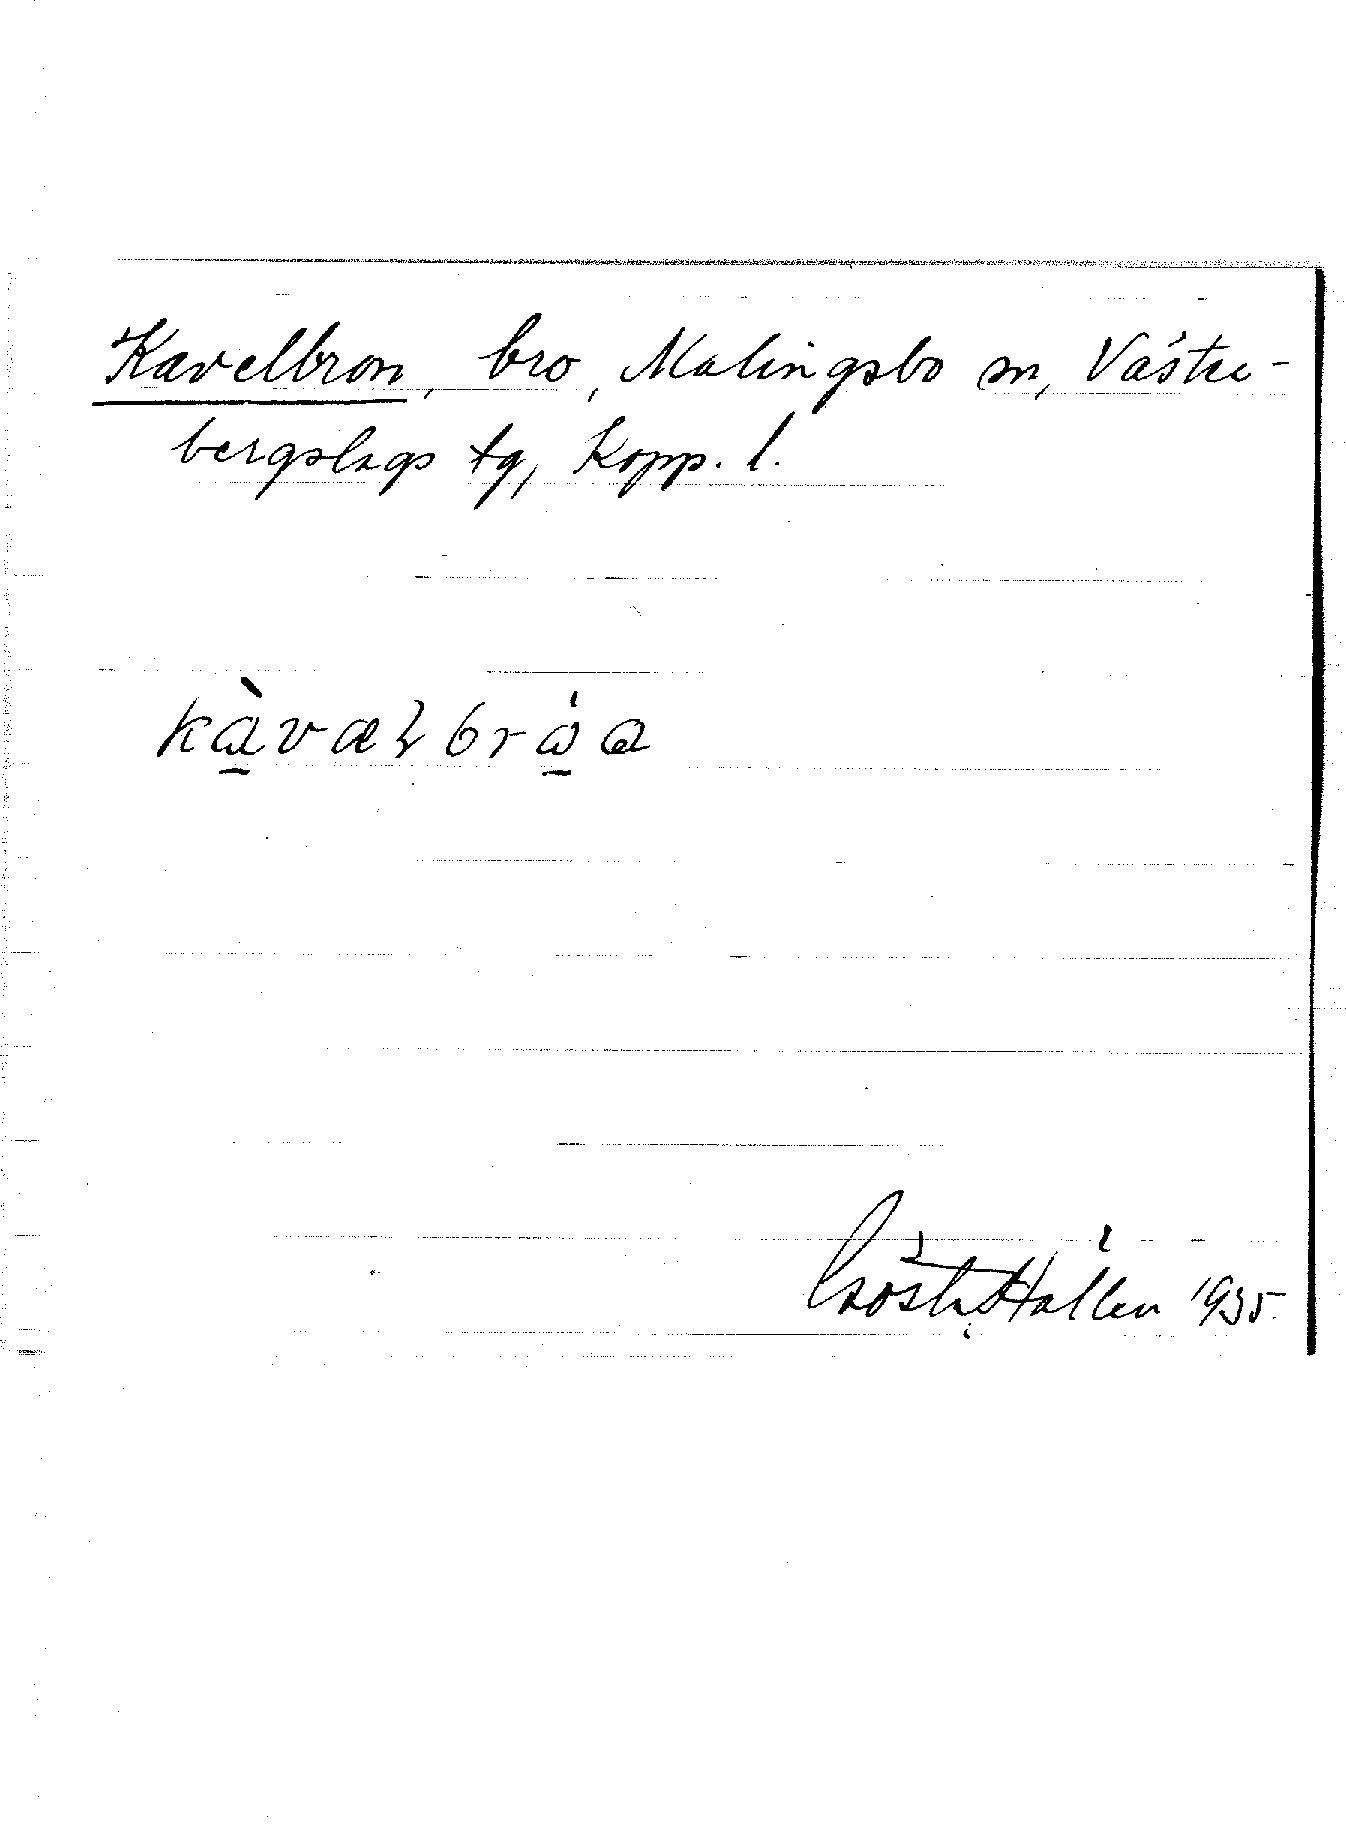 Kavelbron, bro, Malingsbo sn, Västra-
bergslags tg, Kopp. l.
kàvælbrώa
Gösta Hallén 1935.